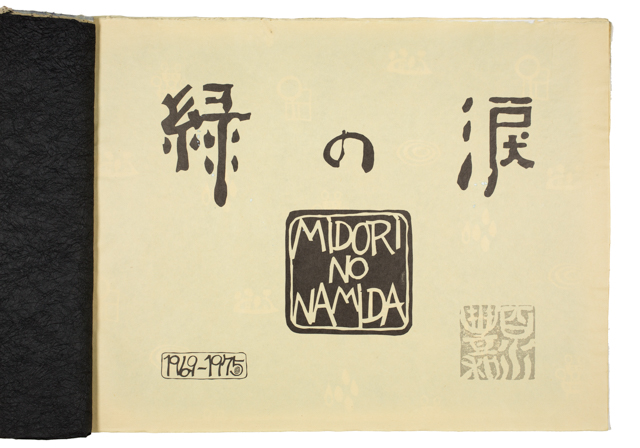 緑の涙
MIDORI
NO
NAMIDA
1969-1975